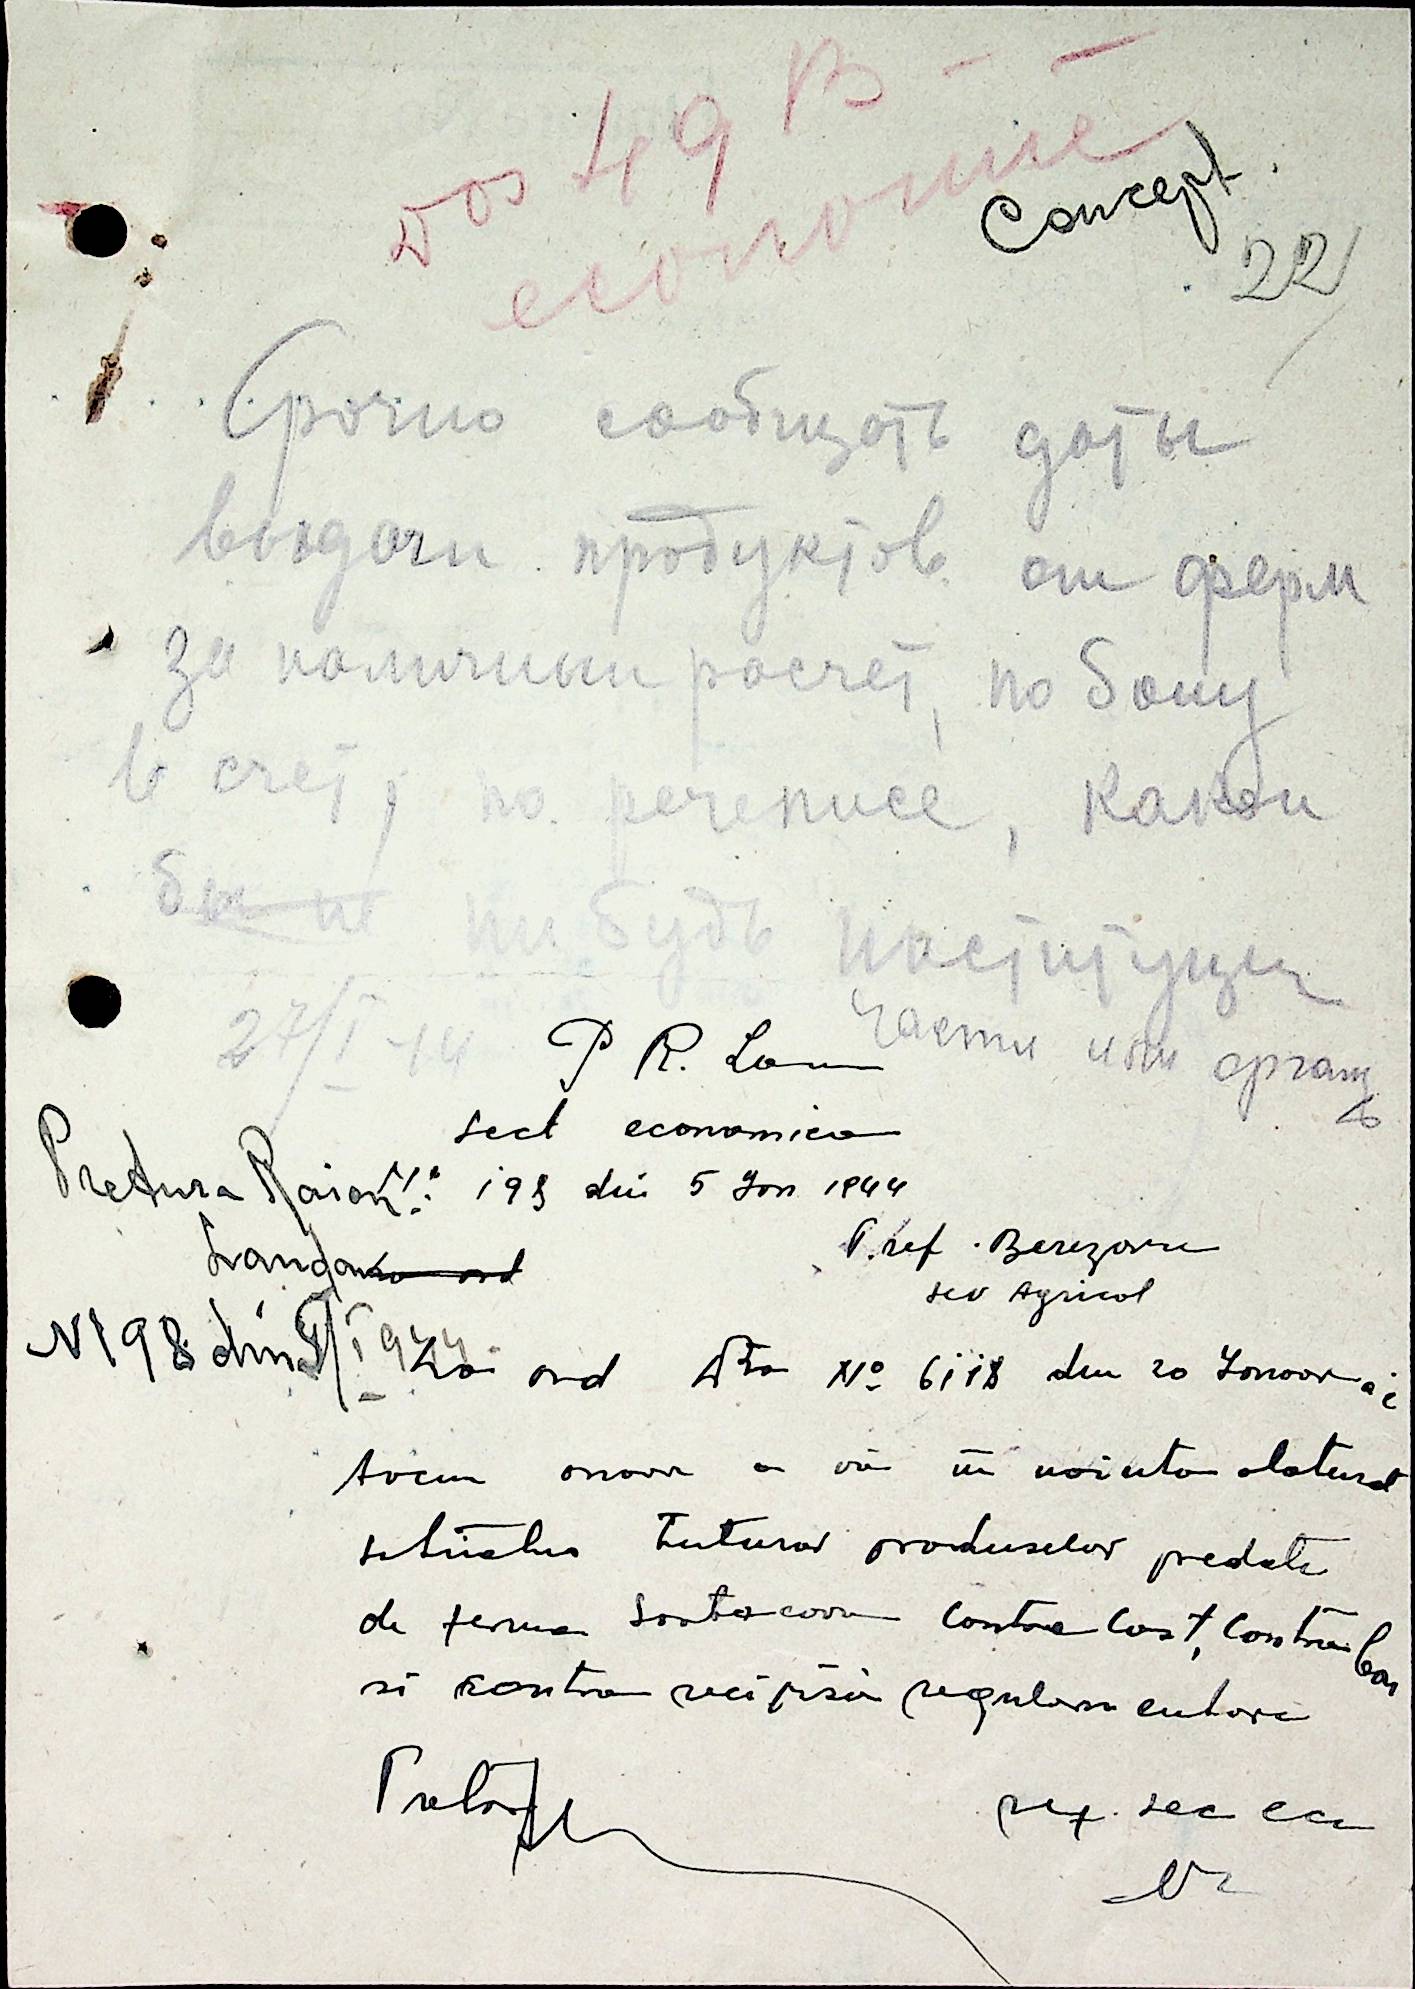 Dos 49 B
economice
Concept.
22
Срочно сообщать даты
выдачи продуктов от ферм
за наличный расчет, по бону
в счет, по рецеписе, какой
бы не нибудь институции
27/I-44
части или организ
P R. Landau
sect economica
Pretura Raion
No. 198 din 5 Ian 1944
Landau ord
Pref. Berezovca
sev Agricol
N 198 din 5/I 944.
La ord Dvs No 6118 din 20 Ianuar a c
Avem onoare a vă înainta alaturat
situatia tuturor produselor predate
de ferma contra cost, contra bon
si contra recipisă regulamentara
Pretor
sec